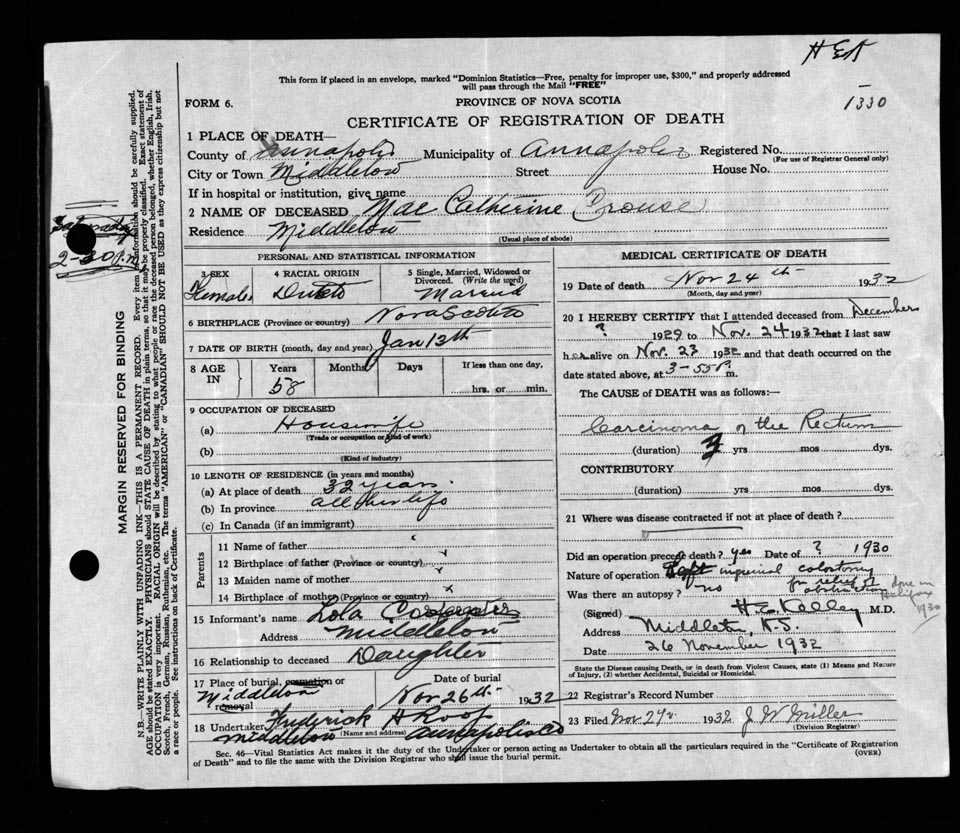 H E K
This form if placed in an envelope, marked "Dominion Statistics—Free, penalty for improper use, $300," and properly addressed
will pass through the Mail "FREE"
1330
FORM 6. PROVINCE OF NOVA SCOTIA
CERTIFICATE OF REGISTRATION OF DEATH
1 PLACE OF DEATH—
County of Annapolis Municipality of Annapolis Registered No.
(For use of Registrar General only)
City or Town Middleton Street House No.
If in hospital or institution, give name
2 NAME OF DECEASED Mae Catherine Crouse
Residence Middleton
(Usual place of abode)
PERSONAL AND STATISTICAL INFORMATION
3 SEX 4 RACIAL ORIGIN 5 Single, Married, Widowed or
Divorced. (Write the word)
Female Married
6 BIRTHPLACE (Province or country) Nova Scotia
7 DATE OF BIRTH (month, day and year) Jan 13th
8 AGE IN Years Months Days If less than one day,
58 hrs. or min.
9 OCCUPATION OF DECEASED
(a) Housewife
(Trade or occupation or kind of work)
(b)
(Kind of industry)
10 LENGTH OF RESIDENCE (in years and months)
(a) At place of death 32 years.
(b) In province all her life
(c) In Canada (if an immigrant)
Parents
11 Name of father
12 Birthplace of father (Province or country)
13 Maiden name of mother
14 Birthplace of mother (Province or country)
15 Informant's name Lola
Address Middleton
16 Relationship to deceased Daughter
17 Place of burial, cremation or removal Date of burial
Middleton Nov 26th 1932
18 Undertaker Frederick H Roop
(Name and address)
Middleton Annapolis Co
MEDICAL CERTIFICATE OF DEATH
19 Date of death Nov 24th 1932
(Month, day and year)
20 I HEREBY CERTIFY that I attended deceased from December
? 1929 to Nov. 24 1932 that I last saw
her alive on Nov. 23 1932 and that death occurred on the
date stated above, at 3-55 P. m.
The CAUSE of DEATH was as follows:—
Carcinoma of the Rectum
(duration) 3 yrs mos dys.
CONTRIBUTORY
(duration) yrs mos dys.
21 Where was disease contracted if not at place of death?
Did an operation precede death? yes Date of ? 1930
Nature of operation Left inguinal colostomy
for relief of obstruction
done in Halifax 1930
Was there an autopsy? no
(Signed) H E Kelley M.D.
Address Middleton, N.S.
Date 26 November 1932
State the Disease causing Death, or in death from Violent Causes, state (1) Means and Nature
of Injury, (2) whether Accidental, Suicidal or Homicidal.
22 Registrar's Record Number
23 Filed Nov 27th 1932 J W Miller
(Division Registrar)
Sec. 46—Vital Statistics Act makes it the duty of the Undertaker or person acting as Undertaker to obtain all the particulars required in the "Certificate of Registration
of Death" and to file the same with the Division Registrar who shall issue the burial permit. (OVER)
Saturday
2-30 p.m
MARGIN RESERVED FOR BINDING
N.B.—WRITE PLAINLY WITH UNFADING INK—THIS IS A PERMANENT RECORD. Every item of information should be carefully supplied.
AGE should be stated EXACTLY. PHYSICIANS should STATE CAUSE OF DEATH in plain terms, so that it may be properly classified. Exact statement of
OCCUPATION is very important. RACIAL ORIGIN will be described by stating to what people or race the deceased person belonged, whether English, Irish,
Scotch, French, German, Russian, Ruthenian, etc. The terms "AMERICAN" or "CANADIAN" SHOULD NOT BE USED as they express citizenship but not
a race or people. See instructions on back of Certificate.